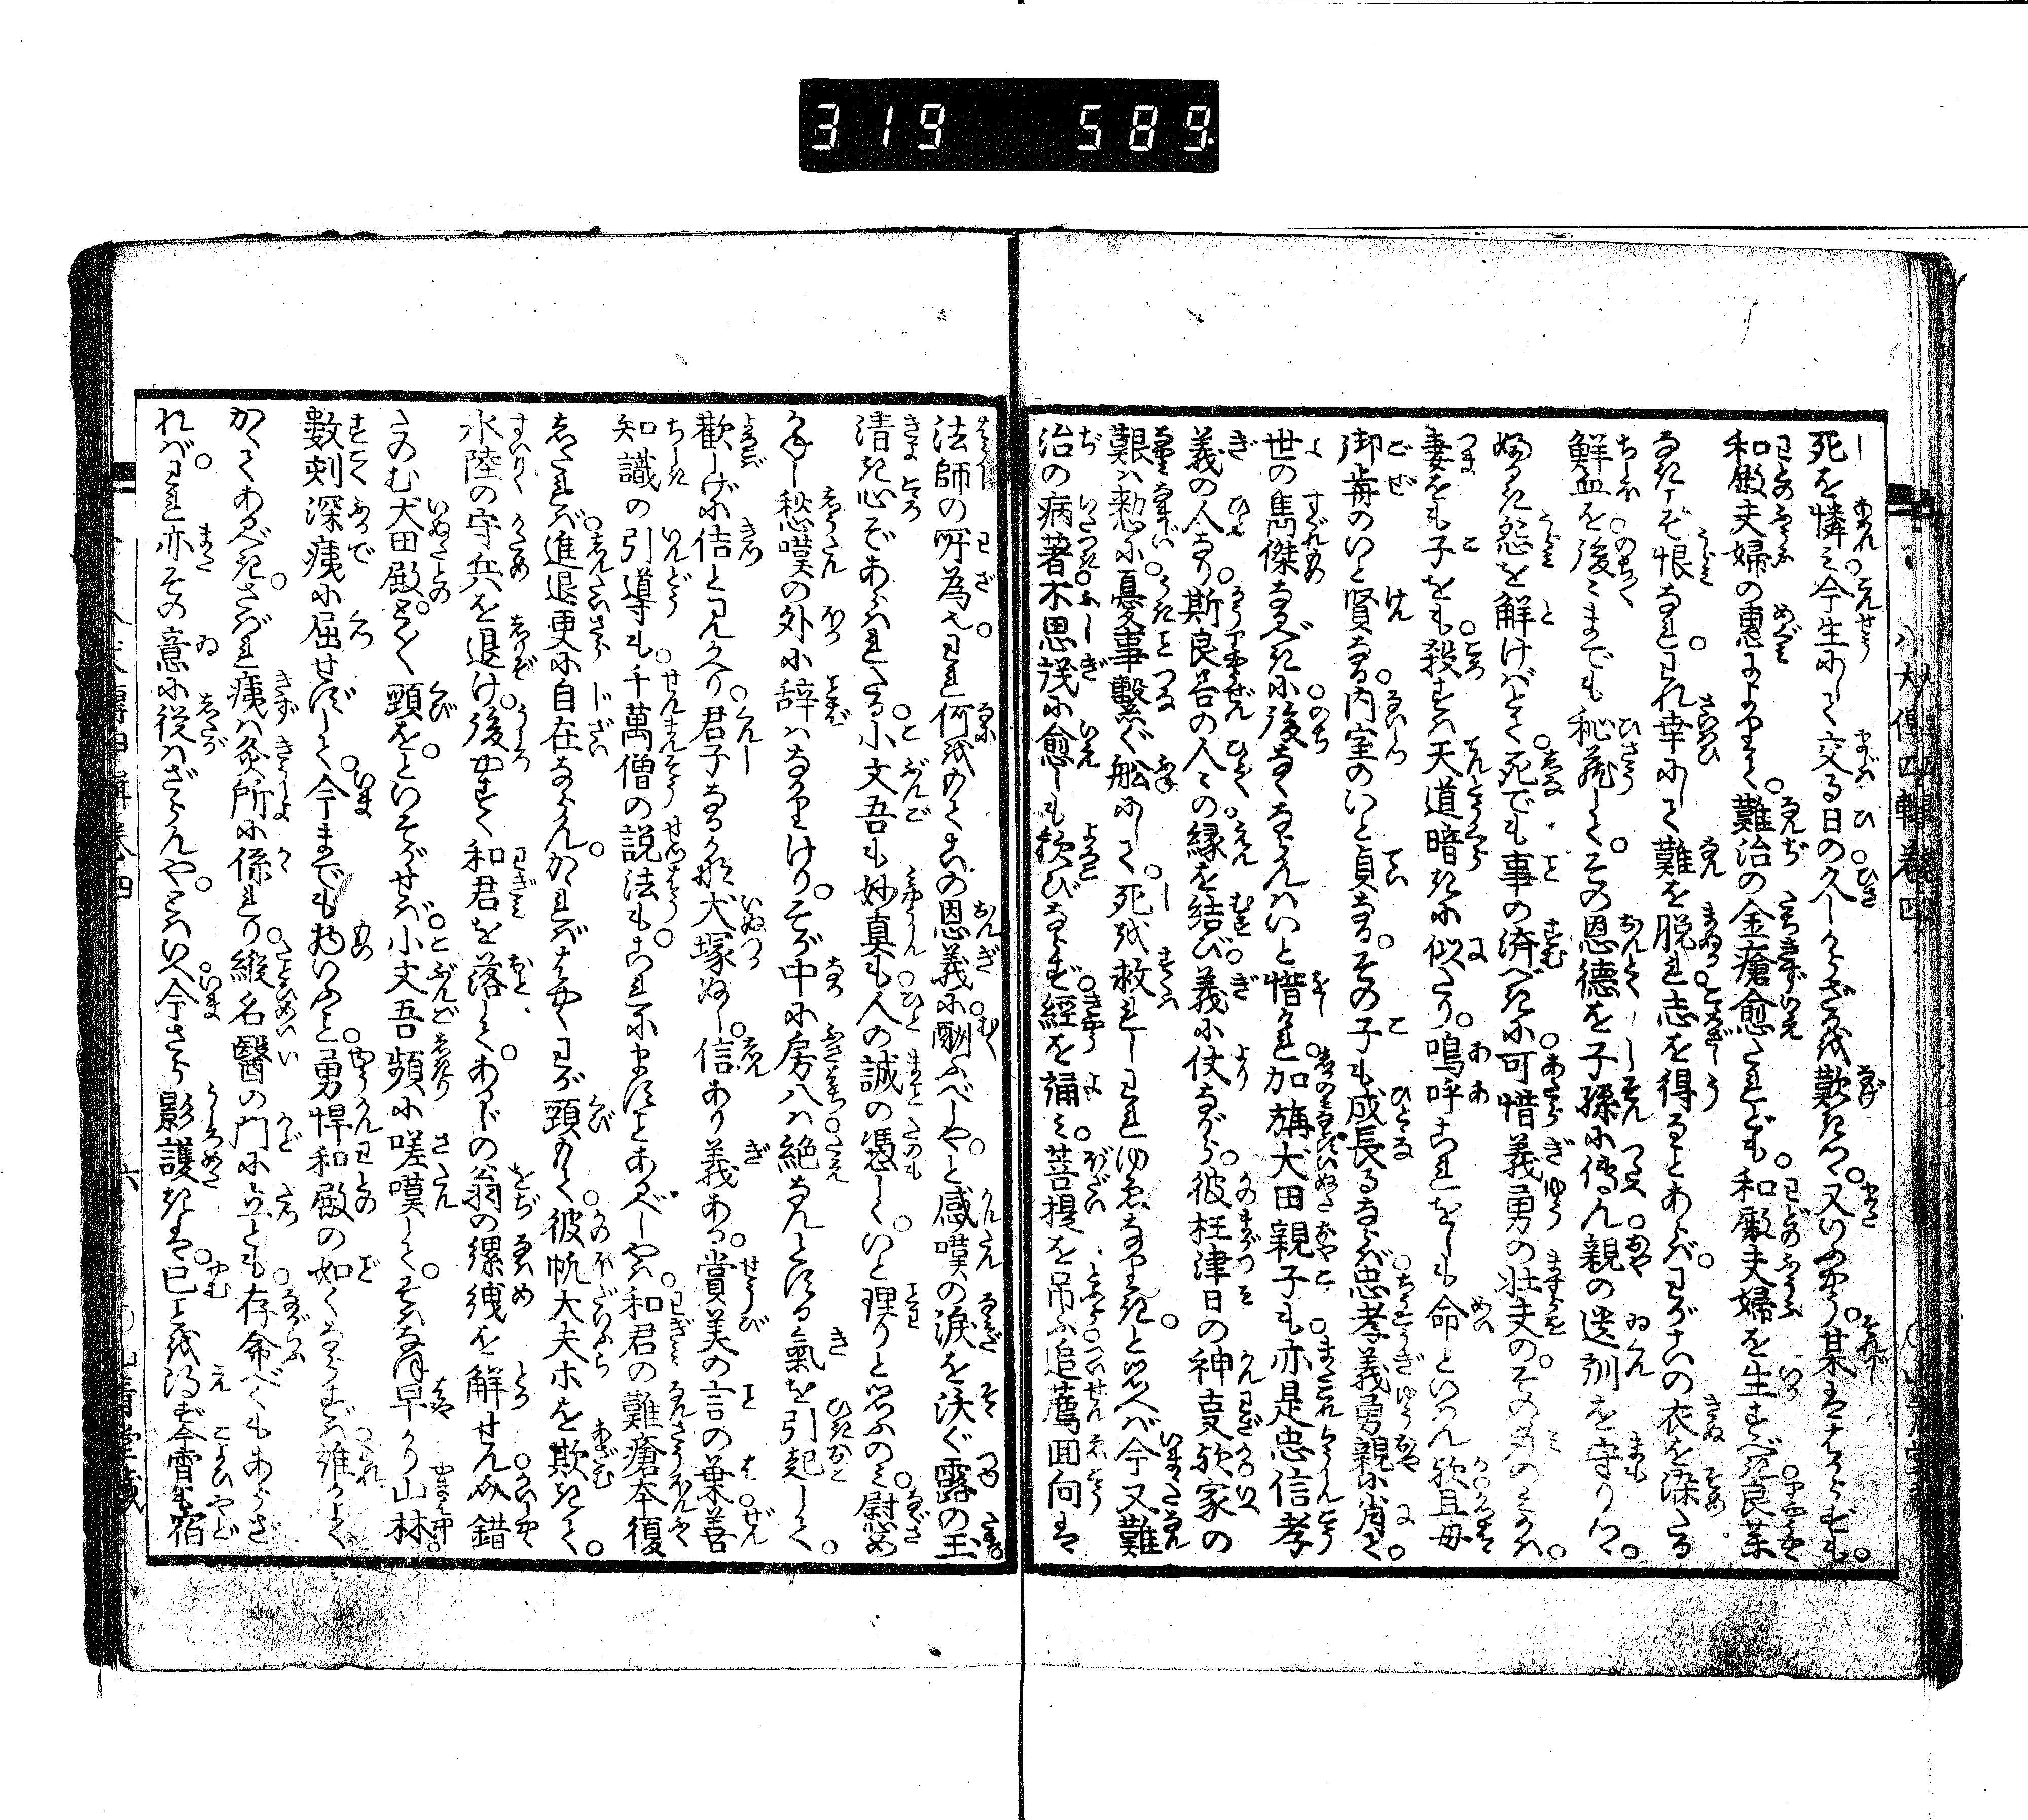 319 589
八犬傳四輯卷四
死を憐み今生にして交る日の久しからざるを歎きつ又いふやう某はしらずも
和殿夫婦の惠によりて難治の金瘡愈たれども和殿夫婦を生すべき良薬
なきぞ恨なるわれ幸にして難を脱れ志を得ることあらばわがこの衣を染たる
鮮血を後々までも秘蔵してその恩徳を子孫に傳ん親の遺訓を守りつ
婦るき怨を解けばとく死でも事の済べきに可惜義勇の壮夫のその身のみかは
妻をも子をも殺すは天道暗きに似たり嗚呼これをしも命といはん歟且母
御前のいと賢なる内室のいと貞なるその子も成長るならば忠孝義勇親に肖て
世の雋傑なるべきに後なくならんはいと惜けれ加旃犬田親子も亦是忠信孝
義の人なり斯良善の人々の縁を結び義に仗ながら彼枉津日の神事歟家の
艱は愸に憂事繋ぐ舩にして死を救れしわれゆゑなりきと思へば今又難
治の病著不思議に愈しも歓びならず經を誦み菩提を吊ふ追薦囬向は
法師の所為也われ何をもてこの恩義に酬ふべしやと感嘆の涙を沃ぐ露の玉
清き心ぞあらはれたる小文吾も妙真も人の誠の憑しくいと理りと思ふのみ慰め
かねし愁嘆の外に辞はなかりけりそが中に房八は絶なんとする氣を引起して
歡しげに佶と見かへり君子なるかな犬塚ぬし信あり義ある賞美の言の葉善
知識の引導も千萬僧の説法もこれにますことあるべしやは和君の難瘡本復
したれば進退更に自在ならんかればはやくわが頸もて彼帆大夫ホを欺きて
水陸の守兵を退け後やすく和君を落してあるじの翁の縲絏を解せん介錯
たのむ犬田殿とく頸をといそがせば小文吾頻に嗟嘆してそはな早り山林
數刺深痍に屈せずして今までも物いふこと勇悍和殿の如くならずば誰かよく
かくてあるべきさばれ痍は灸所に係れり縦名醫の門に立とも存命べくもあらざ
ればわれ亦その意に從はざらんやとはいへ今さら影護きは已ことを得ず今宵も宿
八犬傳四輯卷四
六
山青堂藏